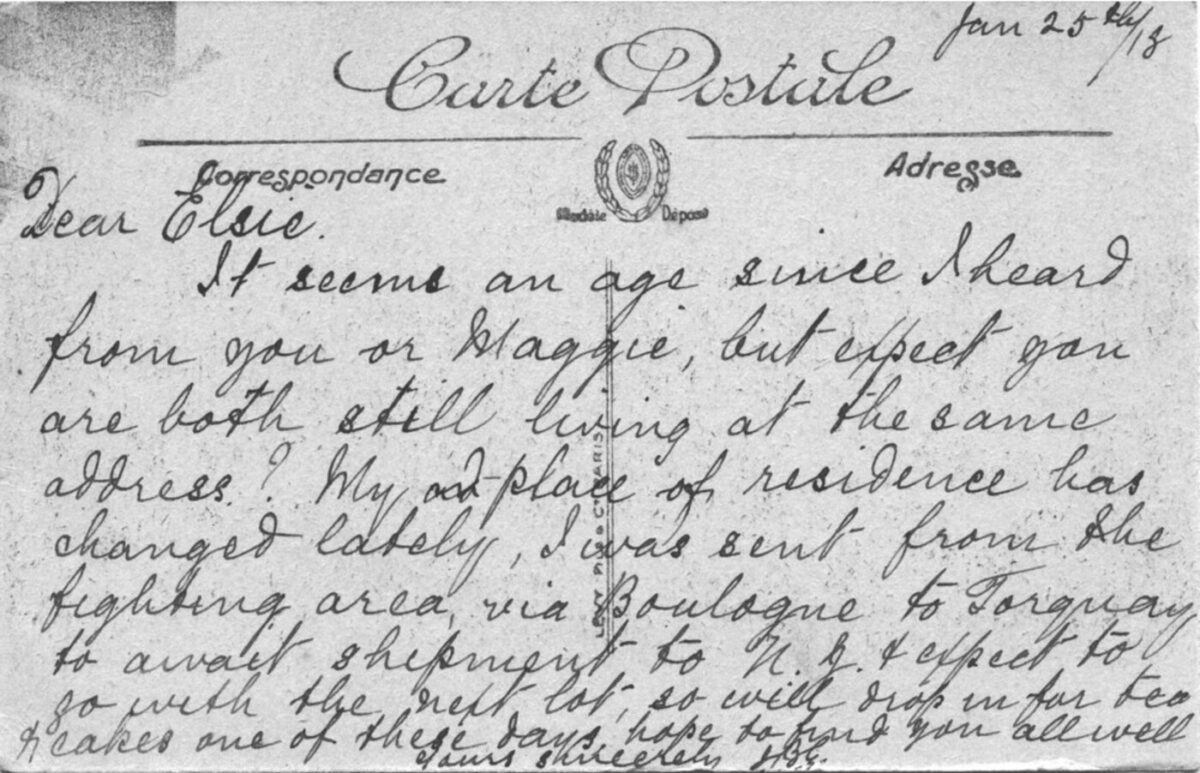 Jan 25th/18
Carte Postale
Correspondance
Adresse
Modèle Déposé
Dear Elsie.
It seems an age since I heard
from you or Maggie, but expect you
are both still living at the same
address? My ad place of residence has
changed lately, I was sent from the
fighting area, via Boulogne to Torquay
to await shipment to N.Z. & expect to
go with the next lot, so will drop in for tea
& cakes one of these days, hope to find you all well
Yours sincerely
PARIS